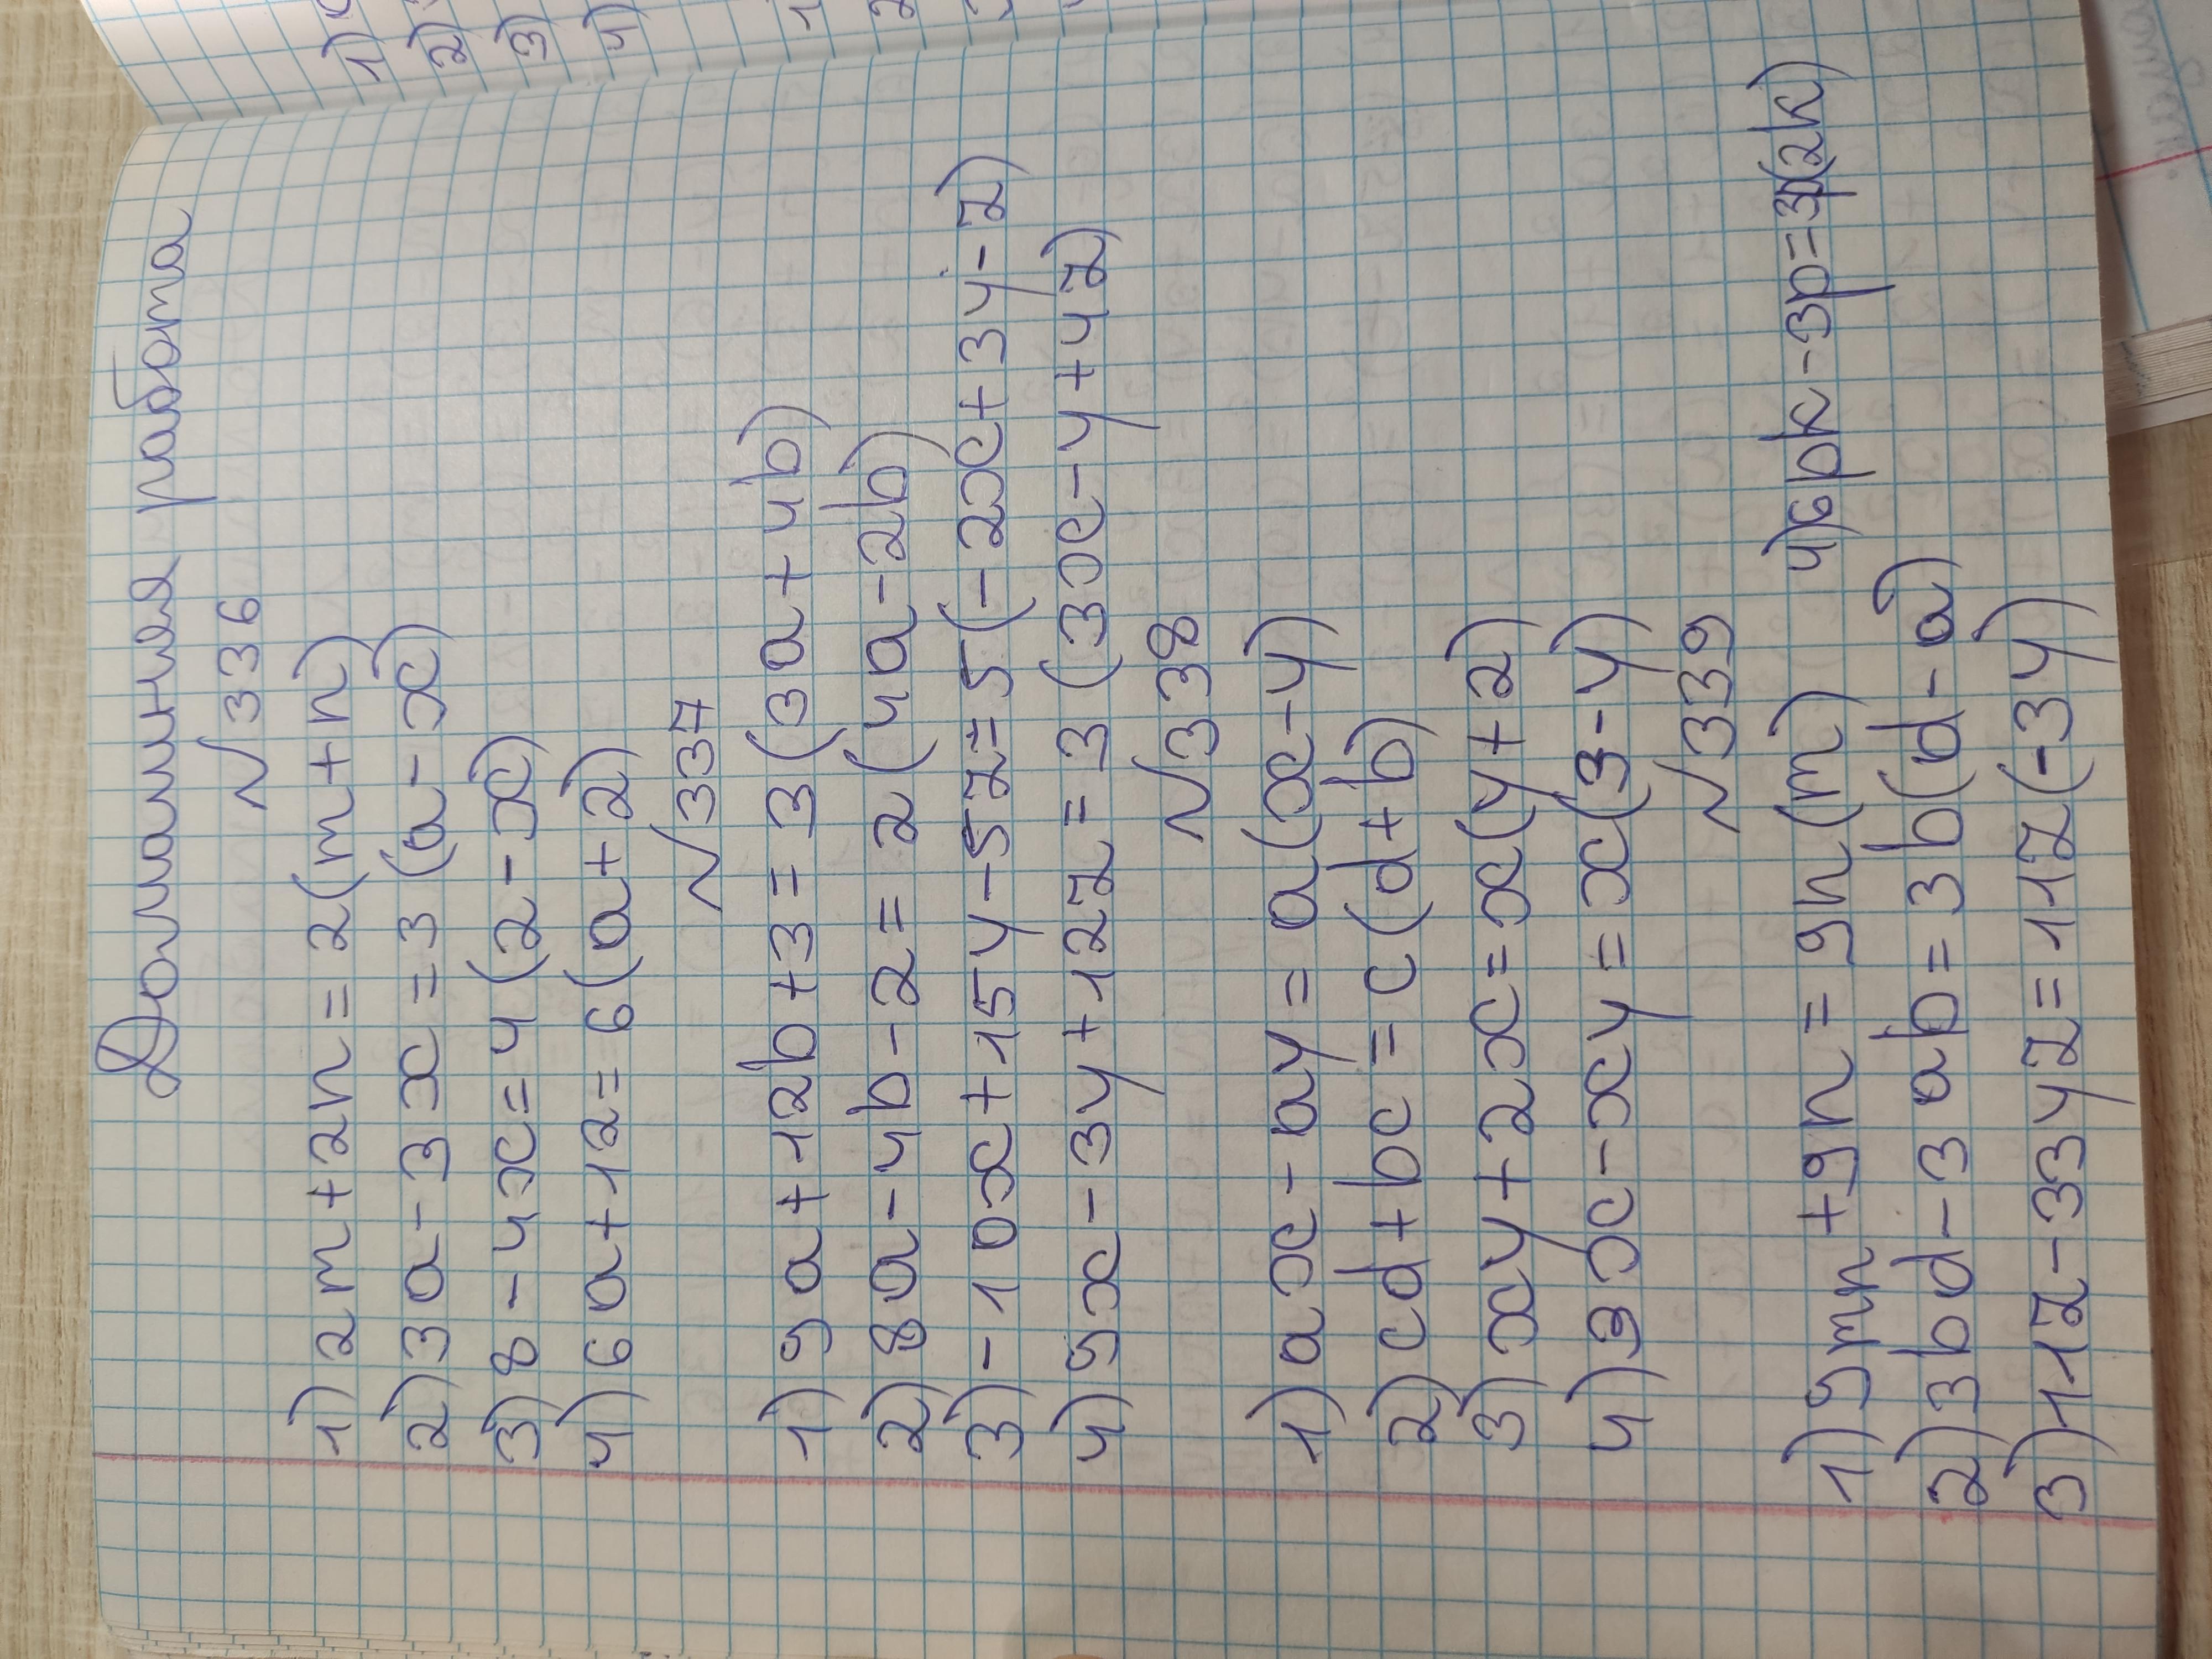 Домашняя работа
№336
1) 2m+2n=2(m+n)
2) 3a-3x=3(a-x)
3) 8-4x=4(2-x)
4) 6a+12=6(a+2)
№337
1) 9a+12b+3=3(3a+4b)
2) 8a-4b-2=2(4a-2b)
3) -10x+15y-5z=5(-2x+3y-z)
4) 9x-3y+12z=3(3x-y+4z)
№338
1) ax-ay=a(x-y)
2) cd+bc=c(d+b)
3) xy+2x=x(y+2)
4) 3x-xy=x(3-y)
№339
1) 9mn+9n=9n(m) 4) 6pk-3p=3p(2k)
2) 3bd-3ab=3b(d-a)
3) 11z-33yz=11z(-3y)
1)
2)
3)
4)